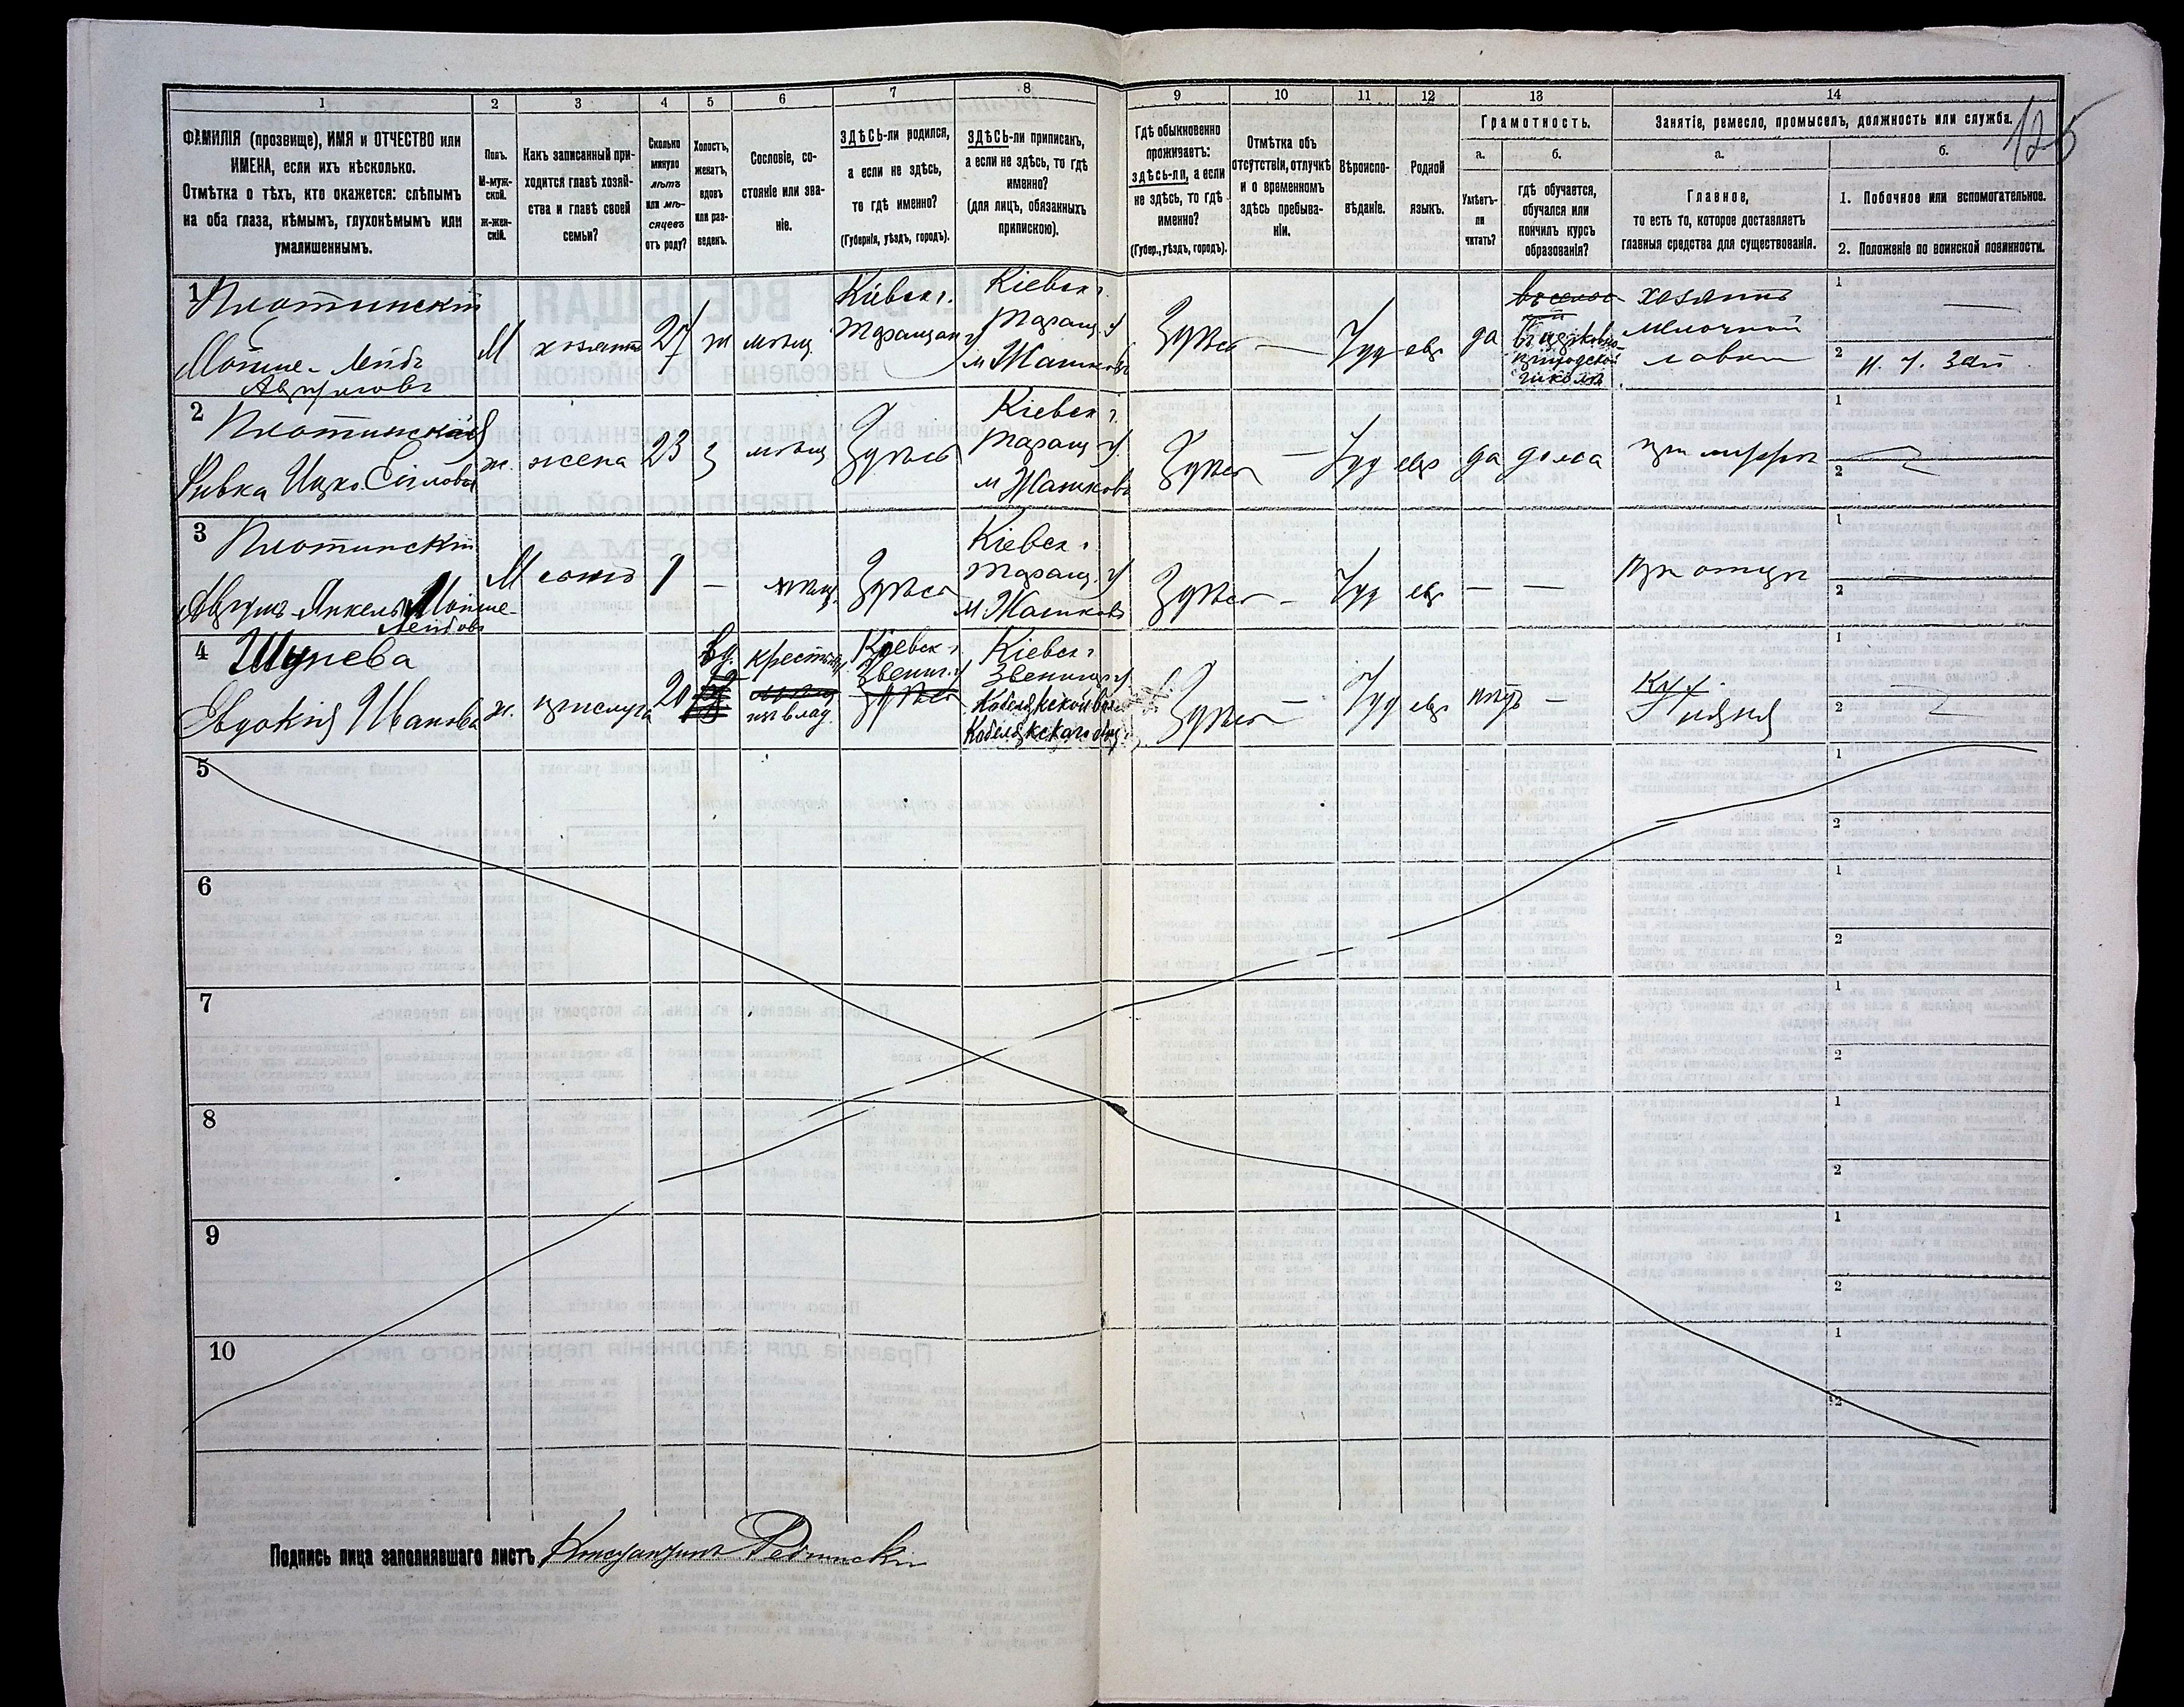 125
1 2 3 4 5 6 7 8 9 10 11 12 13 14
ФАМИЛІЯ (прозвище), ИМЯ и ОТЧЕСТВО или
ИМЕНА, если ихъ нѣсколько.
Отмѣтка о тѣхъ, кто окажется: слѣпымъ
на оба глаза, нѣмымъ, глухонѣмымъ или
умалишеннымъ.
Полъ.
М-муж-
ской.
Ж-жен-
скій.
Какъ записанный при-
ходится главѣ хозяй-
ства и главѣ своей
семьи?
Сколько
минуло
лѣтъ
или мѣ-
сяцевъ
отъ роду?
Холостъ,
женатъ,
вдовъ
или раз-
веденъ.
Сословіе, со-
стояніе или зва-
ніе.
ЗДѢСЬ-ли родился,
а если не здѣсь,
то гдѣ именно?
(Губернія, уѣздъ, городъ).
ЗДѢСЬ-ли приписанъ,
а если не здѣсь, то гдѣ
именно?
(для лицъ, обязанныхъ
припискою).
Гдѣ обыкновенно
проживаетъ:
здѣсь-ли, а если
не здѣсь, то гдѣ
именно?
(Губер., уѣздъ, городъ).
Отмѣтка объ
отсутствіи, отлучкѣ
и о временномъ
здѣсь пребыва-
ніи.
Вѣроиспо-
вѣданіе.
Родной
языкъ.
Грамотность.
а.
Умѣетъ-
ли
читать?
б.
гдѣ обучается,
обучался или
кончилъ курсъ
образованія?
Занятіе, ремесло, промыселъ, должность или служба.
а.
Главное,
то есть то, которое доставляетъ
главныя средства для существованія.
б.
1. Побочное или вспомогательное.
2. Положеніе по воинской повинности.
1 Плотинскій
Мотше-Лейбъ
Аврумовъ
М
хозяинъ
27
ж
мѣщ.
Кіевск г.
Таращан у
Кіевск г.
Таращ. у
м Жашковъ
Здѣсь
—
Іуд
евр
да
въ церковно-
приходской
школѣ
хозяинъ
мелочной
лавки
1 —
2
2 Плотинская
Ривка Ицко
ж.
жена
23
з
мѣщ
Здѣсь
Кіевск г.
Таращ у.
м Жашковъ
Здѣсь
—
Іуд
евр
да
дома
при мужѣ
1
2
3 Плотинскій
Аврумъ-Янкель Мотше
Лейбовъ
М
сынъ
1
—
мѣщ.
Здѣсь
Кіевск г.
Таращ. у
м Жашковъ
Здѣсь
—
Іуд
евр
—
—
При отцѣ
1
2 —
4
Евдокія Иванова
ж.
прислуга
20
Вд.
Кіевск г.
Звениг. у
Кіевск г.
Звениг у
Здѣсь
—
Іуд
евр
нѣтъ
—
няня
1
2
5
1
2
6
1
2
7
1
2
8
1
2
9
1
2
10
1
2
Подпись лица заполнявшаго листъ